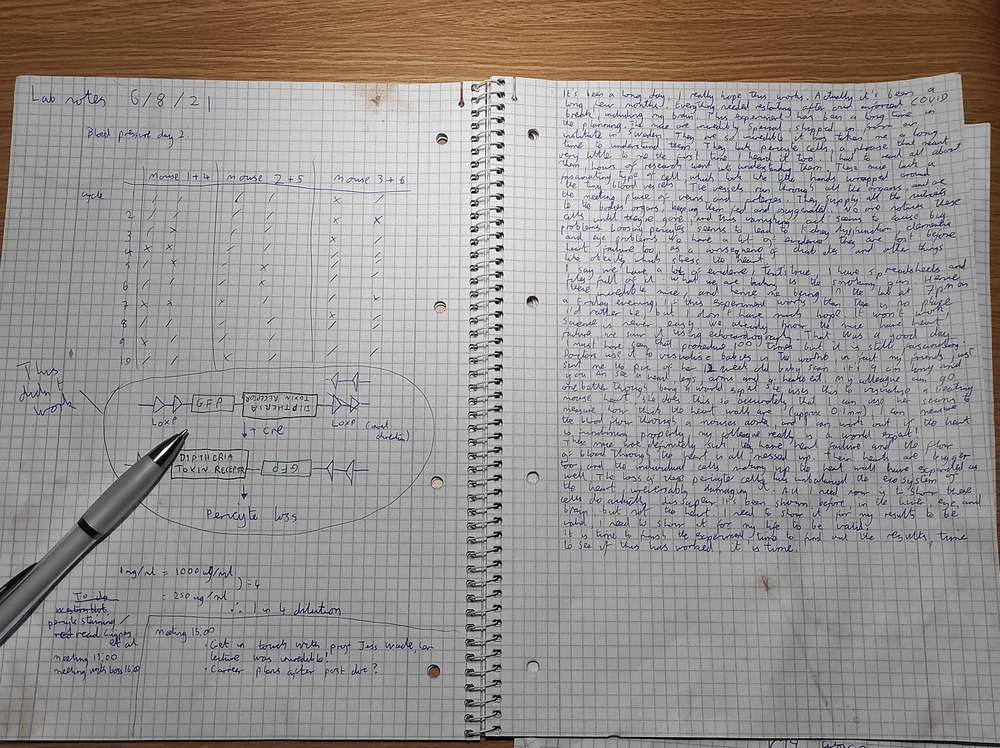 Lab notes 6/8/21
Blood pressure day 2.
mouse 1+4 mouse 2+5 mouse 3+6
cycle
2
3
4
5
6
7
8
9
10
This
didn't
work
GFP
DIPTHERIA
TOXIN RECEPTOR
LoxP
LoxP
direction)
+ cre
DIPTHERIA
TOXIN RECEPTOR
GFP
Pericyte loss
1mg/ml = 1000 ug/ml
) ÷ 4
= 250 ug/ml
∴ 1 in 4 dilution
To do
western blot,
pericyte staining /
read
et al
meeting 15.00
meeting with boss 16.00
meeting 15.00
• Get in touch with prof Jess Wade, her
lecture was incredible!
• Career plans after post doc?
It's been a long day. I really hope this works. Actually it's been a
long few months. Everything needed restarting after our enforced COVID
break, including my brain. This experiment has been a long time in
the planning. The mice are incredibly special, shipped in from an
institute in Sweden. They are so incredible it has taken me a long
time to understand them. They lack pericyte cells, a phrase that meant
very little to me the first time I heard it too. I had to read all about
them, hours of research went into understanding them. These mice lack a
fascinating type of cell which looks like little hands wrapped around
the tiny blood vessels. The vessels run through all the organs, and are
the meeting place of veins and arteries. They supply all the nutrients
to the bodies organs, keeping them fed and oxygenated. We dont notice these
cells until they're gone, and this vanishing act seems to cause big
problems. Loosing pericytes seems to lead to kidney dysfunction, dementia
and eye problems. We have a lot of evidence they are lost before
heart failure too, as a consequence of diabetes and other things
like obesity which stress the heart.
I say we have a lot of evidence, that's true. I have spreadsheets and
files full of it. What we are lacking is the smoking gun. Hence
these incredible mice, and hence me being in the lab at 7pm on
a Friday evening. If this experiment works then there is no place
I'd rather be, but I don't have much hope it won't work,
science is never easy. We already know the mice have heart
failure, we saw it using echocardiography. That was a good day.
I must have seen that procedure 100 times but it is still fascinating.
Doctors use it to visualise babies in the womb, in fact my friend just
sent me the pic of her 12 week old baby scan. It's 9 cm long and
you can see a head, legs, arms and a heartbeat. My colleague can go
one better though, being a world expert she uses this to visualise a beating
mouse heart. She does this so accurately that I can use her scans to
measure how thick the heart walls are (approx 0.1mm). I can measure
the blood flow through a mouses aorta, and can work out if the heart
is functioning properly, my colleague really is a world expert!
These mice definitely sick, they have heart failure and the flow
of blood through the heart is all messed up. Their hearts are bigger
too, and the individual cells making up the heart wall have expanded as
well. The loss of these pericyte cells has unbalanced the ecosystem of
the heart, irreversably damaging it. All I need now is to show these
cells do actually dissapear. It's been shown before, in the kidney, eye, and
brain, but not the heart. I need to show it for my results to be
valid. I need to show it for my life to be valid!
It is time to finish the experiment, time to find out the results, time
to see if this has worked. It is time.